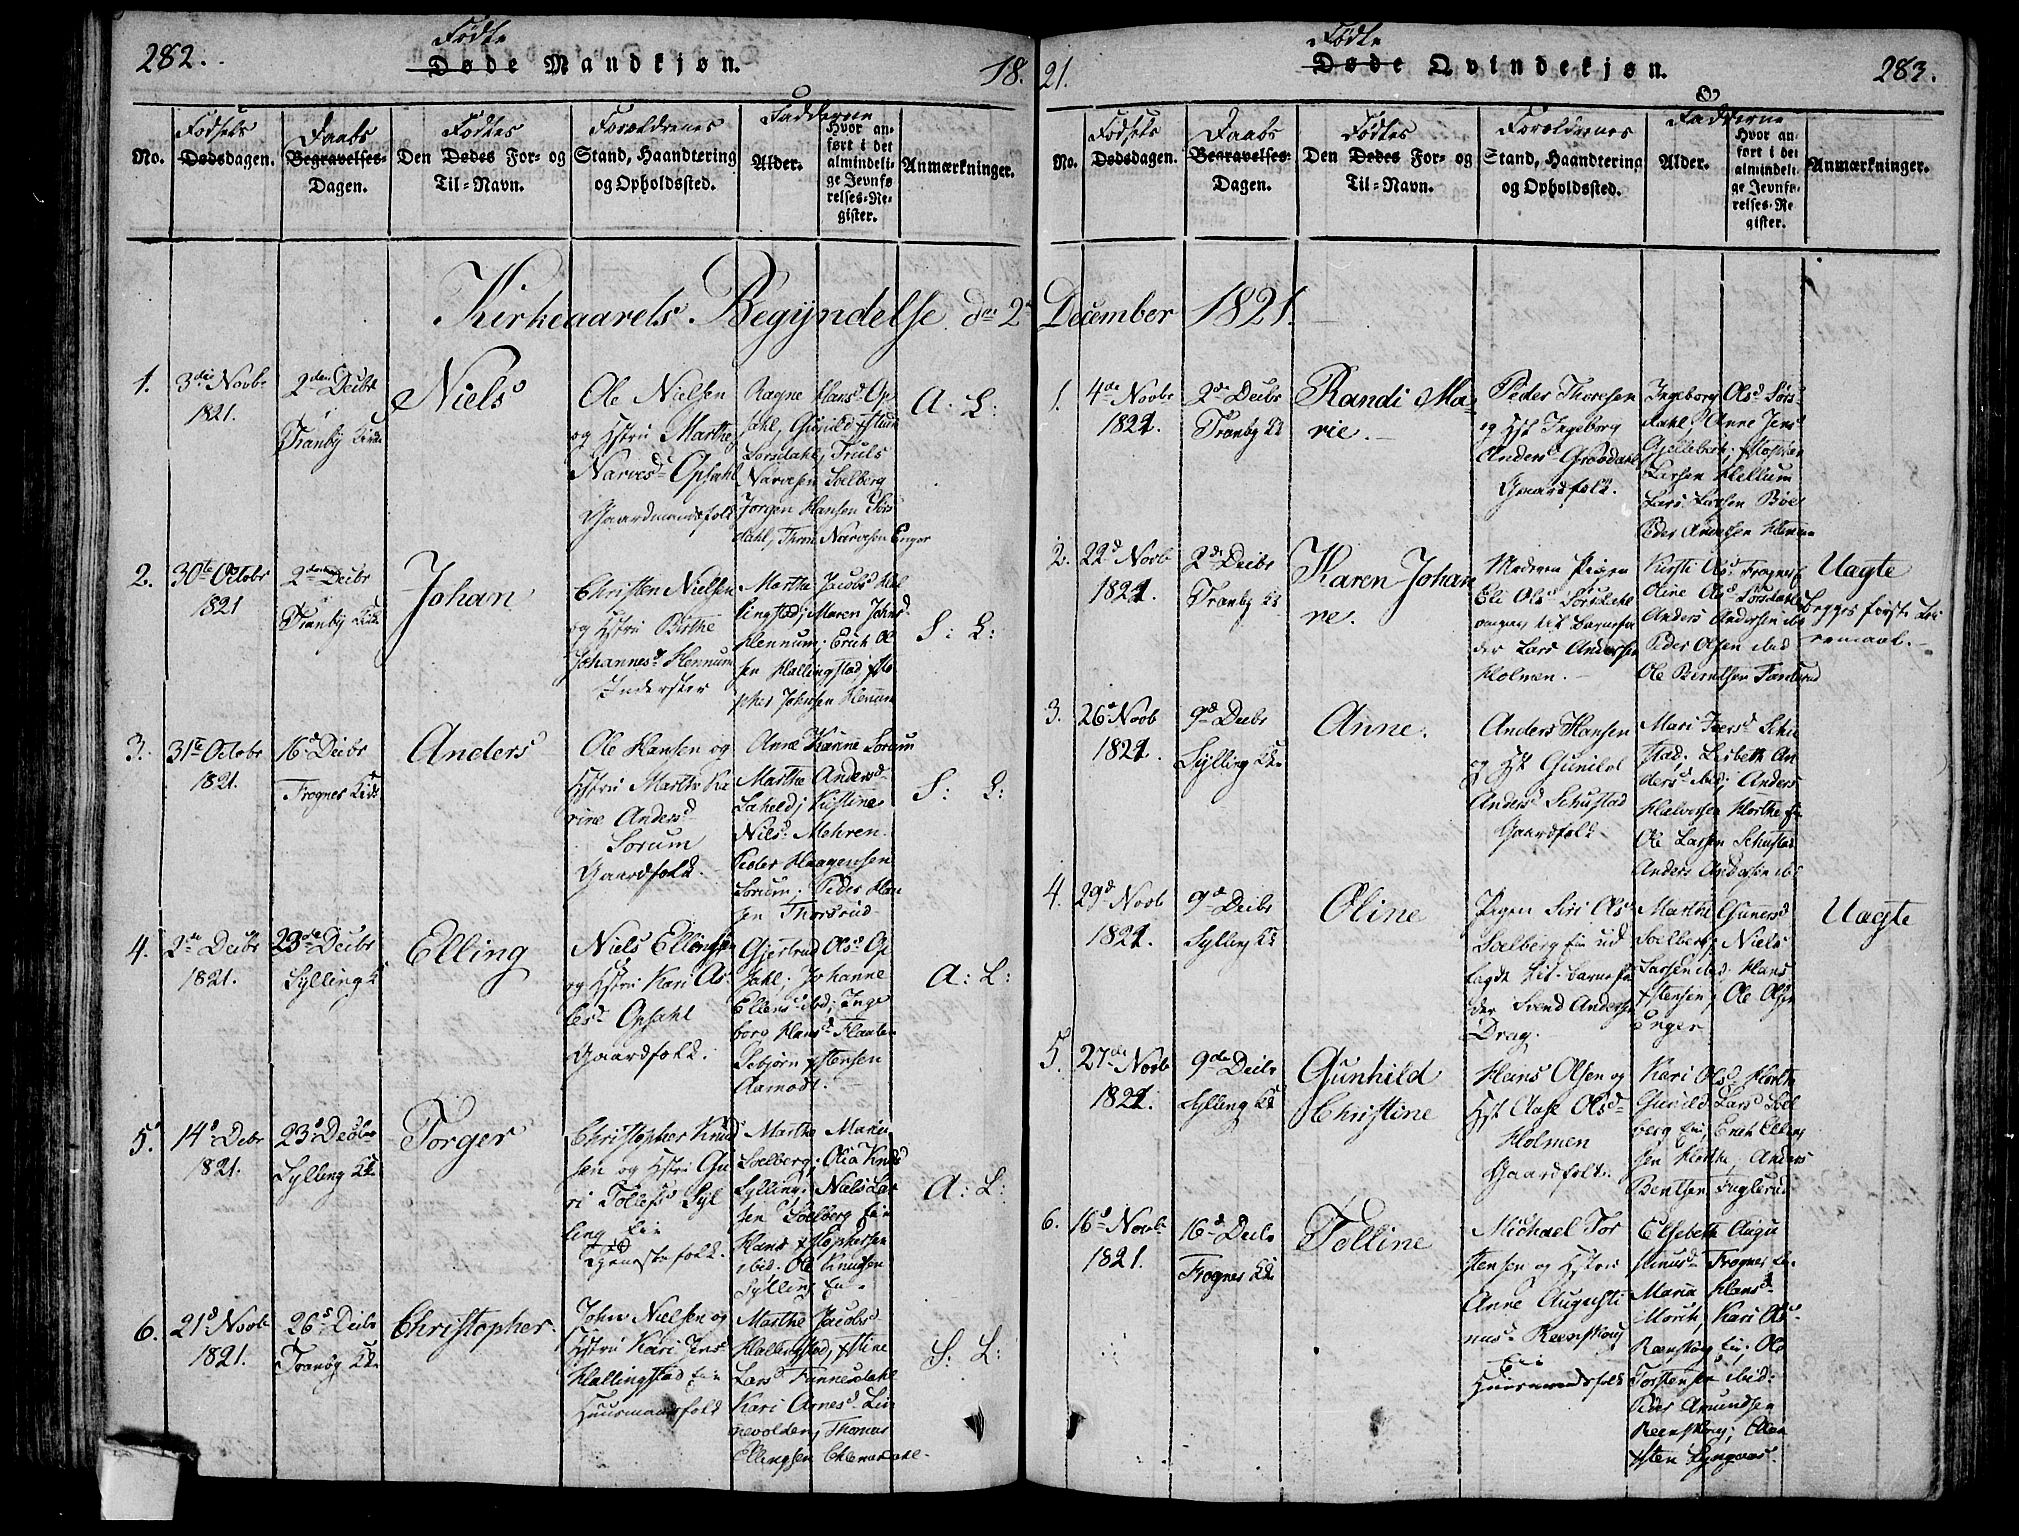 282.
Fødte
Døde Mandkjøn.
18.
No.
Fødsels
Dødsdagen.
Daabs
Begravelses-
Dagen.
Fødtes
Den Dødes For- og
Til-Navn.
Forældrenes
Stand, Haandtering
og Opholdssted.
Fadderne
Alder.
Hvor an-
ført i det
almindeli-
ge Jevnfø-
relses-Re-
gister.
Anmærkninger.
Kirkeaarets Begyndelse den 2de
1.
3die Novbr
1821.
2den Decbr
Tranby Kirke
Niels
Ole Nielsen
og Hstru Marthe
Narvesd Opsahl
Gaardmandsfolk
Ragne Hansd Op
sahl, Gunild
Sørsdahl, Truls
Narvesen Solberg
Jørgen Hansen Sørs
dahl, Thron Narvesen Enger
A: L:
2.
30te Octobr
1821
2den Decbr
Tranby Kirke
Johan
Christen Nielsen
og Hstru Birthe
Johannesd Hennum
Inderster
Marthe Jacobsd Hal
lingstad; Maren Johnsd
Hennum; Erich Ol
sen Hallingstad
Johnsen Hennum
S: L:
3.
31te Octobr
1821.
16d Decbr
Frogner Kirke
Anders
Ole Hansen og
Hstru Marthe Ka
rine Andersd
Sorum
Gaardfolk.
Anne Hanne Sorum
Marthe Andersd
Laheld; Kirstine
Nielsd Mehren
Peder Haagensen
Sorum; Peder Han
sen Thorsrud
S: L:
4.
2de Decbr
1821.
23de Decbr
Sylling K
Elling
Niels Ellingsen
og Hstru Kari As
lesd Opsahl
Gaardfolk.
Gjertrud Olsd Op
sahl; Johanne
Ellensd ibid; Inge
borg Hansd Flaaten
Torbjørn Stensen
Aamodt.
A: L:
5.
14d Debr
1821.
23d Decbr
Sylling Kke
Torger
Christopher Knud
sen og Hstru Gu
ri Tollefsd Syl
ling Eie
Tjenestefolk.
Marthe Marie
Solberg; Olia Knudsd
Sylling; Niels Lar
sen Solberg Eie
Hans Stophersen
ibid. Ole Knudsen
Sylling Eie
A: L:
6.
21d Novbr
1821.
26d Decbr
Tranby Kke
Christopher.
John Nielsen og
Hstru Kari Jensd
Hallingstad Eie
Huusmandsfolk
Marthe Jacobsd
Hallingstad, Stine
Larsd Finnesdahl
Kari Arnesd Lie
nevolden; Thomas
Ellingsen
S: L:
21.
Fødte
Døde Qvindekjøn.
283.
No.
Fødsels
Dødsdagen.
Daabs
Begravelses-
Dagen.
Fødtes
Den Dødes For- og
Til-Navn.
Forældrenes
Stand, Haandtering
og Opholdssted.
Fadderne
Alder.
Hvor an-
ført i det
almindeli-
ge Jevnfø-
relses-Re-
gister.
Anmærkninger.
December 1821.
1.
4de Novbr
1821.
2de Decbr
Tranby Kk
Randi Ma-
rie.
Peder Thoresen
og Hst Ingeborg
Andersd Grøsdahl
Gaardfolk.
Ingeborg Olsd Sørs
dahl, Anne Jensd
Gjellebek; Stopher
Larsen Hellum
Lars Larsen Bøe
Peder Arnesen Hennum
2.
22d Novb
1821.
2de Decbr
Tranby Kk
Karen Johan
ne.
Moderen Pigen
Eli Olsd Sørsdahl
angav til Barnefa
der Lars Andersen
Holmen.
Kirsti Olsd Frogner
Oline Olsd Sørsdahl
Anders Andersen ibid
Peder Olsen ibid
Ole Berntsen Tanderud
Uægte
Begges første Lei
ermaal.
3.
26d Novb
1821.
9d Decbr
Sylling Kke
Anne.
Anders Hansen
og Hst Gunild
Andersd Schustad
Gaardfolk
Mari Iversd Schu
stad; Lisbeth An
dersd ibid; Anders
Halvorsen Horthe Eie
Ole Larsen Schustad
Anders Andersen ibd
4.
29d Novb
1821.
9d Decbr
Sylling Kk
Oline
Pigen Siri Olsd
Solberg Eie ud
lagde til Barnefa
der Svend Andersen
Drag.
Marthe Gunersd
Solberg; Niels
Larsen ibid. Hans
Stensen; Ole Olsen
Enger
Uægte
5.
27de Novb
1821.
9de Decbr
Sylling Kk
Gunhild
Christine
Hans Olsen og
Hst Aase Olsd
Holmen
Gaardfolk.
Kari Olsd Horthe
Gunild Larsd Sol
berg Eie, Erich Elling
sen Horthe, Anders
Bentsen Fuglerud
6.
16d Novbr
1821.
16d Decbr
Frogner Kke
Tolline
Michael Tor
stensen og Hstru
Anne Augusti
nusd Reenskoug
Eie
Huusmandsfolk
Elsebeth Augu
stinusd Frogner Eie
Maria Hansd
Morch, Kari Olsd
Reenskoug Eie; Ole
Torstensen ibid:
Peder Amundsen
Reenskoug; Ellen